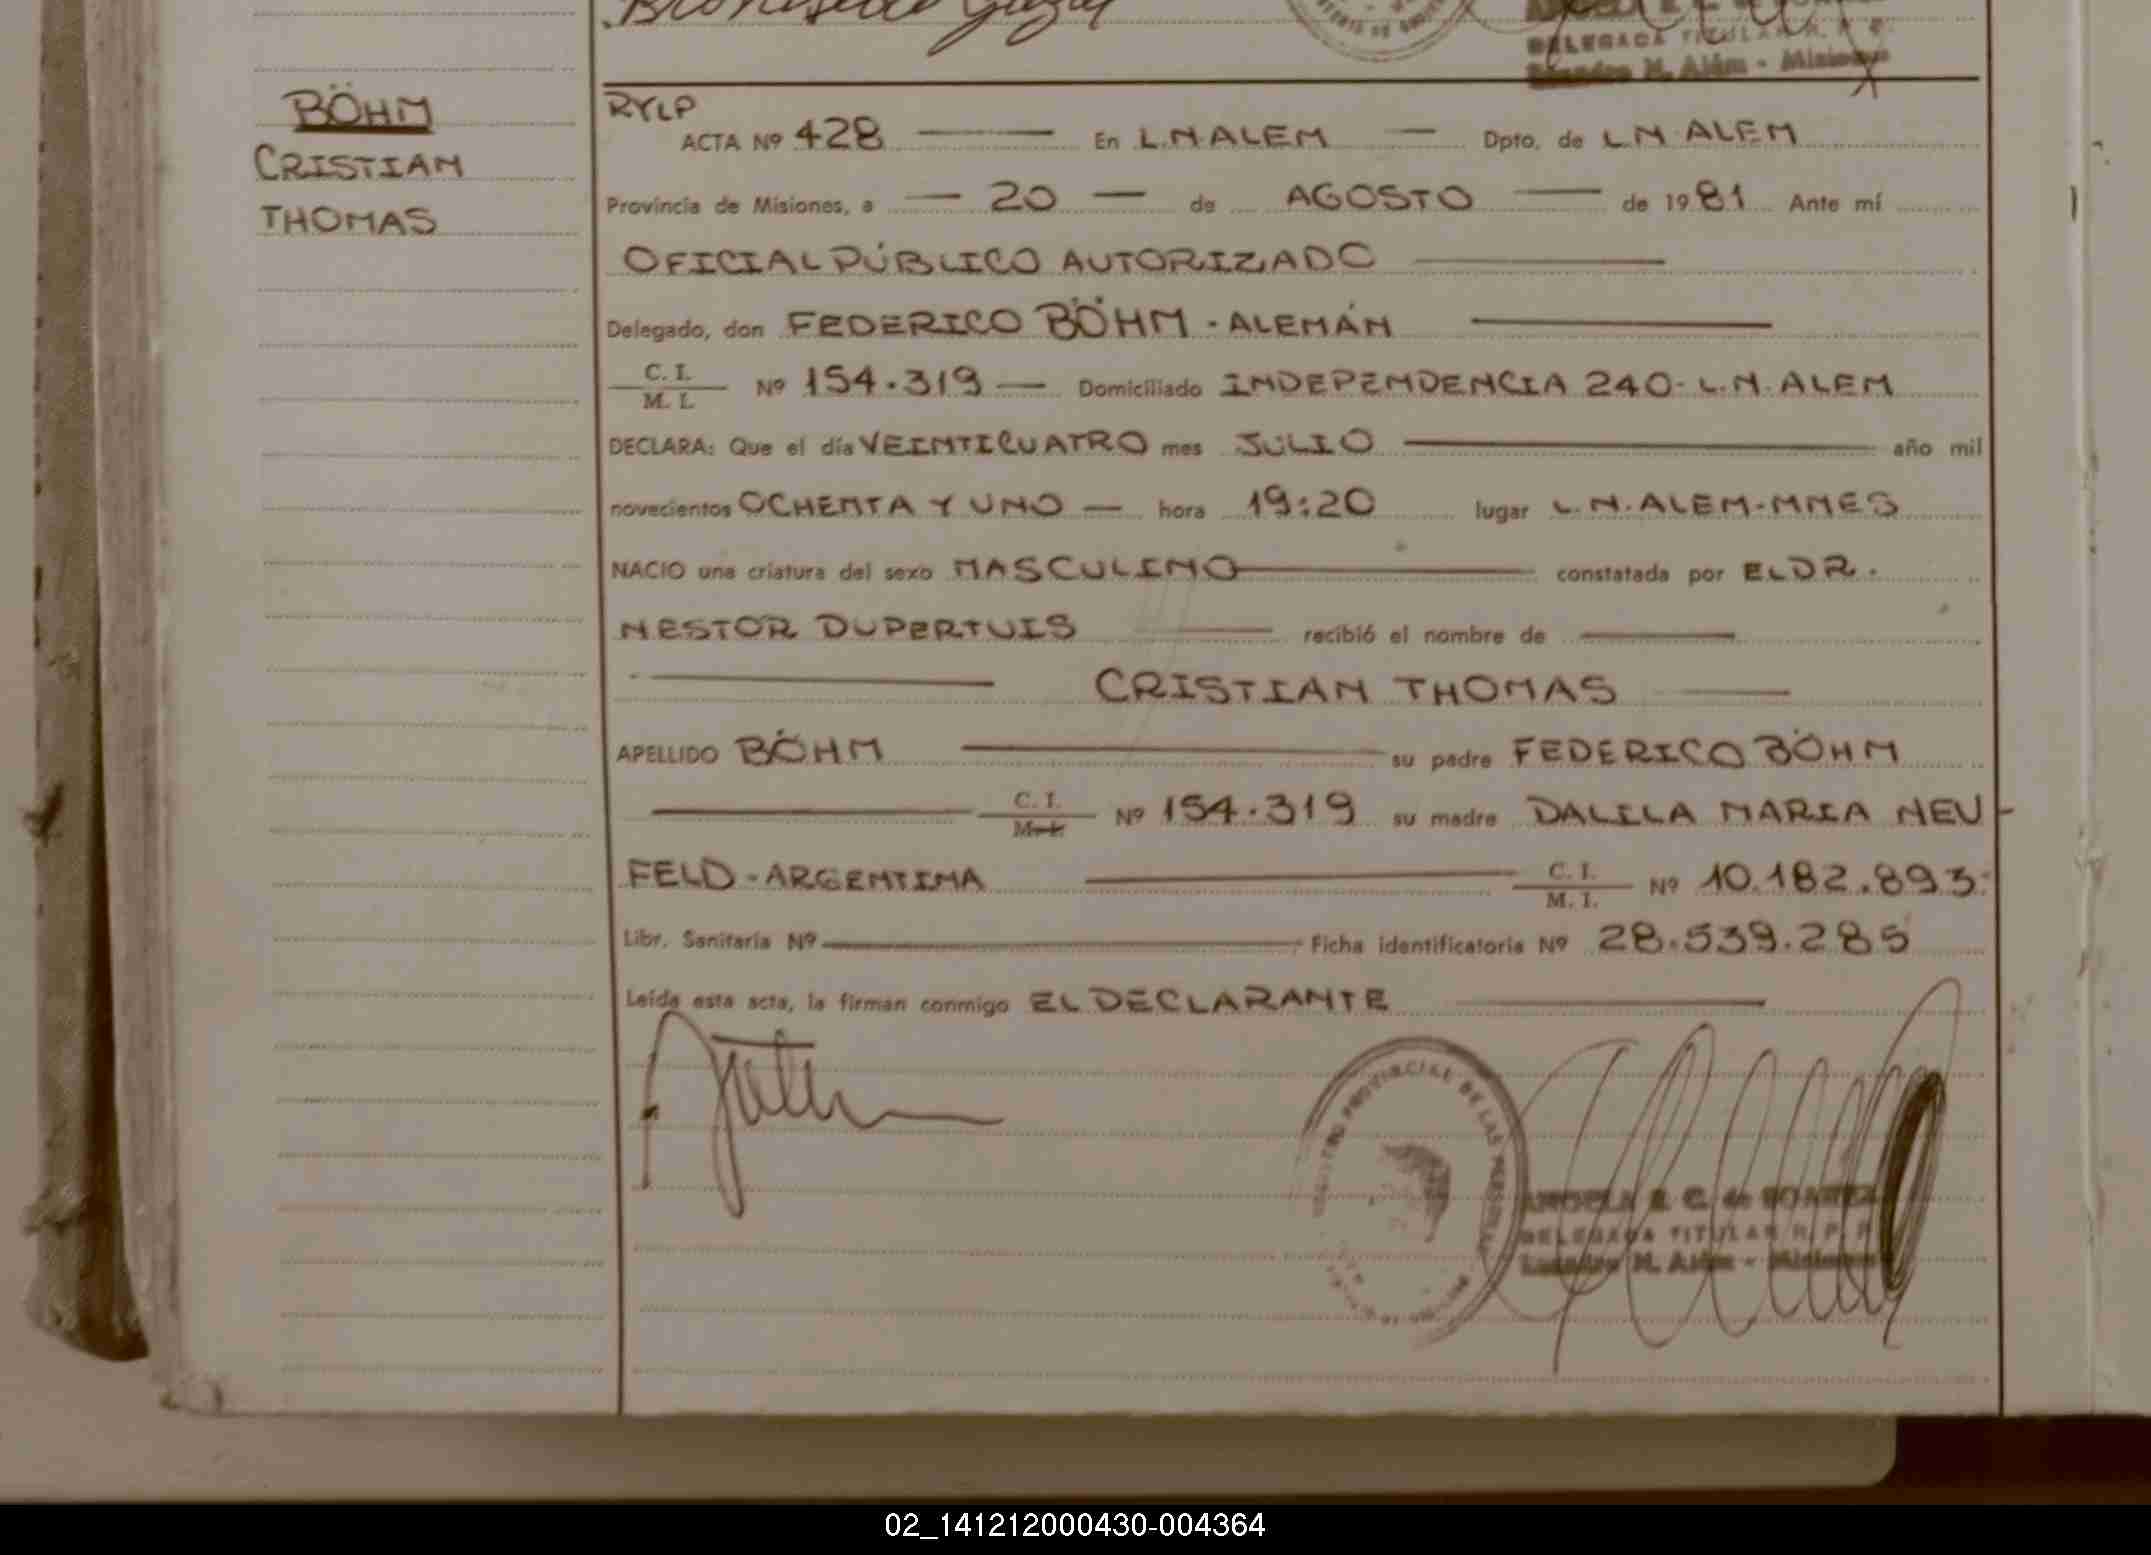 DELEGADA TITULAR R. P. P.
Leandro N. Além - Misiones
BÖHM
CRISTIAN
THOMAS
RYLP
ACTA Nº 428 En L.N ALEM Dpto. de L N ALEM
Provincia de Misiones, a 20 de AGOSTO de 1981 Ante mí
OFICIAL PÚBLICO AUTORIZADO
Delegado, don FEDERICO BÖHM - ALEMÁN
C. I.
M. I. Nº 154.319 Domiciliado INDEPENDENCIA 240- L.N. ALEM
DECLARA: Que el día VEINTICUATRO mes JULIO año mil
novecientos OCHENTA Y UNO hora 19:20 lugar L.N.ALEM-MNES
NACIO una criatura del sexo MASCULINO constatada por EL DR.
NESTOR DUPERTUIS recibió el nombre de
CRISTIAN THOMAS
APELLIDO BÖHM su padre FEDERICO BÖHM
C. I.
M. I. Nº 154.319 su madre DALILA MARIA NEU-
FELD - ARGENTINA C. I.
M. I. Nº 10.182.893
Libr. Sanitaria Nº Ficha identificatoria Nº 28.539.285
Leída esta acta, la firman conmigo EL DECLARANTE
REGISTRO PROVINCIAL DE LAS PERSONAS
ANGELA R. C. de SOAREZ
DELEGADA TITULAR R. P. P.
Leandro N. Além - Misiones
02_141212000430-004364